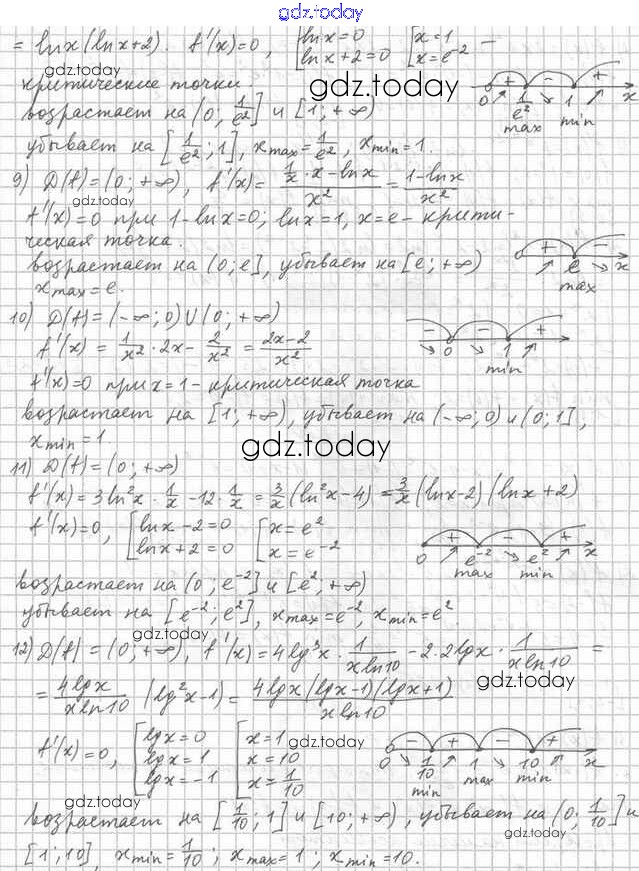 gdz.today
= lnx(lnx+2). f'(x)=0, [lnx=0 [x=1 –
lnx+2=0 x=e⁻²
gdz.today
критические точки
gdz.today
0 + 1/e² – 1 + x
max min
возрастает на (0; 1/e²] и [1; +∞)
убывает на [1/e²; 1], x max = 1/e², x min = 1.
9) D(f)=(0; +∞), f'(x)= (1/x · x - lnx)/x² = (1-lnx)/x²
gdz.today
f'(x)=0 при 1-lnx=0; lnx=1, x=e – крити-
ческая точка.
+ e – x
max
возрастает на (0; e], убывает на [e; +∞)
x max = e.
10) D(f)=(-∞; 0)∪(0; +∞)
– 0 – 1 + x
min
f'(x) = 1/x² · 2x - 2/x² = (2x-2)/x²
f'(x)=0 при x=1 – критическая точка
возрастает на [1; +∞), убывает на (-∞; 0) и (0; 1],
x min = 1
gdz.today
11) D(f)=(0; +∞)
f'(x)=3ln²x · 1/x - 12 · 1/x = 3/x (ln²x-4) = 3/x (lnx-2)(lnx+2)
f'(x)=0, [lnx-2=0 [x=e²
lnx+2=0 x=e⁻²
0 + e⁻² – e² + x
max min
возрастает на (0; e⁻²] и [e²; +∞)
убывает на [e⁻²; e²], x max = e⁻², x min = e².
gdz.today
12) D(f)=(0; +∞), f'(x)=4lg³x · 1/(xln10) - 2·2lgx · 1/(xln10) =
gdz.today
= 4lgx/(xln10) (lg²x-1) = 4lgx(lgx-1)(lgx+1)/(xln10)
f'(x)=0, [lgx=0 [x=1
lgx=1 x=10
lgx=-1 x=1/10
gdz.today
0 – 1/10 + 1 – 10 + x
min max min
gdz.today
возрастает на [1/10; 1] и [10; +∞), убывает на (0; 1/10] и
gdz.today
[1; 10], x min = 1/10; x max = 1; x min = 10.